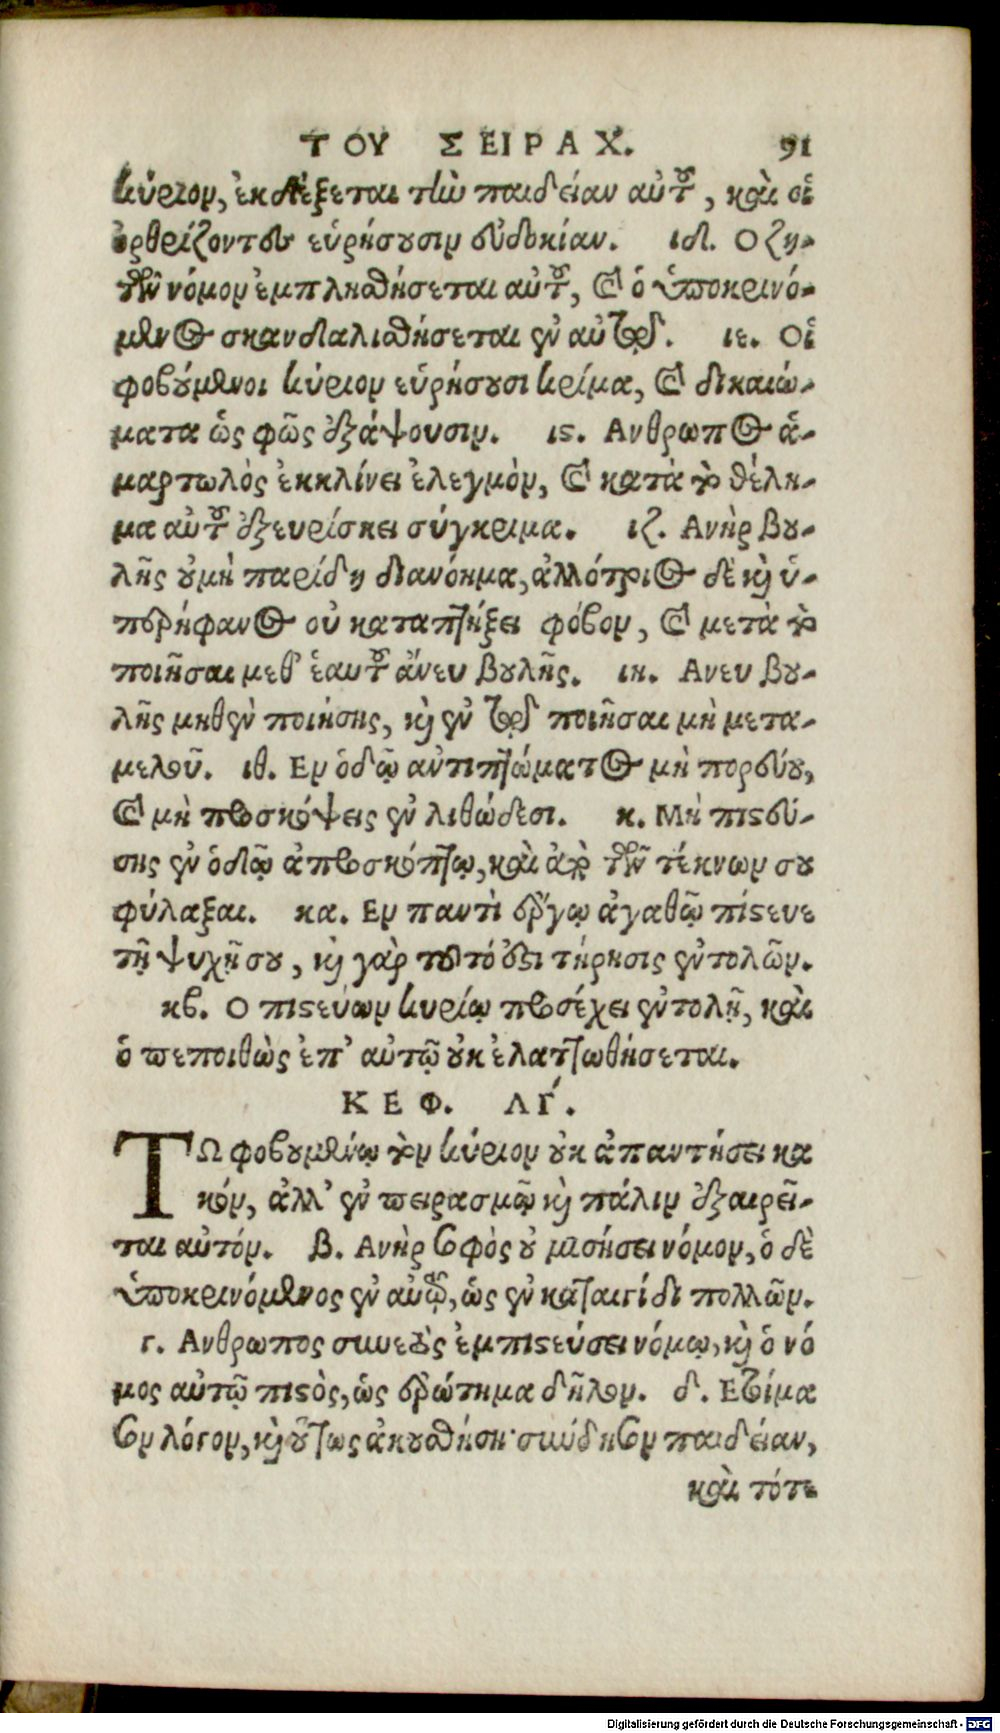 ΤΟΥ ΣΕΙΡΑΧ. 91
κύριον, ἐκδέξεται τὴν παιδείαν αὐτοῦ, καὶ οἱ
ὀρθρίζοντες εὑρήσουσιν εὐδοκίαν. ιδ. Ο ζη-
τῶν νόμον ἐμπλησθήσεται αὐτοῦ, καὶ ὁ ὑποκρινό-
μενος σκανδαλισθήσεται ἐν αὐτῷ. ιε. Οἱ
φοβούμενοι κύριον εὑρήσουσι κρίμα, καὶ δικαιώ-
ματα ὡς φῶς ἐξάψουσιν. ις. Ανθρωπος ἁ-
μαρτωλὸς ἐκκλίνει ἐλεγμὸν, καὶ κατὰ τὸ θέλη-
μα αὐτοῦ ἐξευρίσκει σύγκριμα. ιζ. Ανὴρ βου-
λῆς οὐ μὴ παρίδῃ διανόημα, ἀλλότριος δὲ καὶ ὑ-
περήφανος οὐ καταπτήξει φόβον, καὶ μετὰ τὸ
ποιῆσαι μεθ' ἑαυτοῦ ἄνευ βουλῆς. ιη. Ανευ βου-
λῆς μηθὲν ποιήσης, καὶ ἐν τῷ ποιῆσαι μὴ μετα-
μελοῦ. ιθ. Εν ὁδῷ ἀντιπτώματος μὴ πορεύου,
καὶ μὴ προσκόψεις ἐν λιθώδεσι. κ. Μὴ πιστεύ-
σης ἐν ὁδῷ ἀπροσκόπτῳ, καὶ ἀπὸ τῶν τέκνων σου
φύλαξαι. κα. Εν παντὶ ἔργῳ ἀγαθῷ πίστευε
τῇ ψυχῇ σου, καὶ γὰρ τοῦτό ἐστι τήρησις ἐντολῶν.
κβ. Ο πιστεύων κυρίῳ προσέχει ἐντολῇ, καὶ
ὁ πεποιθὼς ἐπ' αὐτῷ οὐκ ἐλαττωθήσεται.
ΚΕΦ. ΛΓ΄.
ΤΩ φοβουμένῳ τὸν κύριον οὐκ ἀπαντήσει κα
κόν, ἀλλ' ἐν πειρασμῷ καὶ πάλιν ἐξαιρεῖ-
ται αὐτόν. β. Ανὴρ σοφὸς οὐ μισήσει νόμον, ὁ δὲ
ὑποκρινόμενος ἐν αὐτῷ, ὡς ἐν καταιγίδι πολλῶν.
γ. Ανθρωπος συνετὸς ἐμπιστεύσει νόμῳ, καὶ ὁ νό
μος αὐτῷ πιστὸς, ὡς ἐρώτημα δῆλον. δ. Ετοίμα
σον λόγον, καὶ οὕτως ἀκουσθήσῃ· σύνδησον παιδείαν,
καὶ τότε
Digitalisierung gefördert durch die Deutsche Forschungsgemeinschaft - DFG